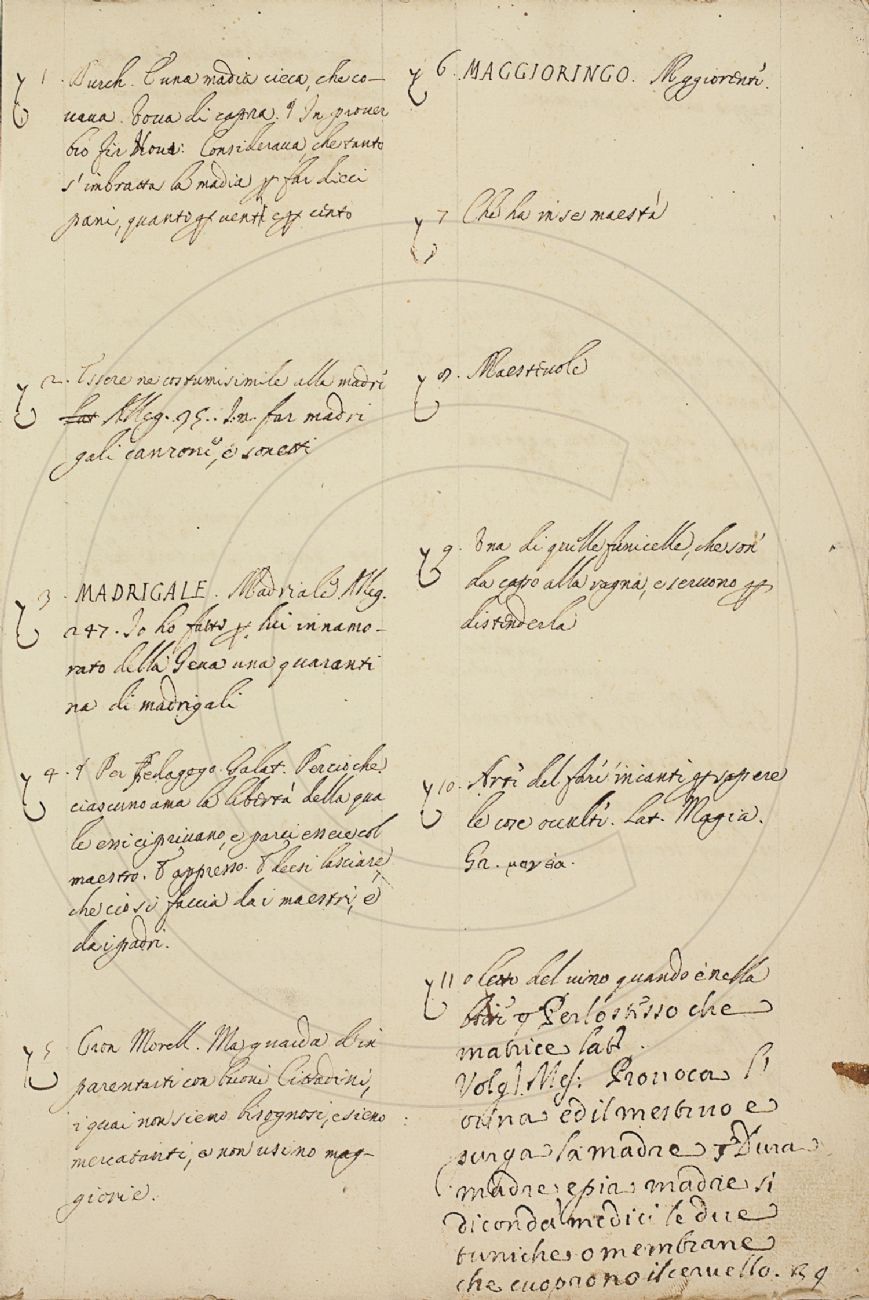 1. Burch. E una madia cieca, che co-
vava. Uova di capra. § In prover
bio fir Nov: Considerava, che tanto
s'imbratta la madia p far dieci
pani, quanto p venti e p cento
2. Essere ne costumi simile alla madre
Lat Alleg. 95. In far madri
gali canzoni, e sonetti
3. MADRIGALE. Madriale Alleg.
247. Io ho fatto p. lui innamo-
rato della Geva una quaranti
na di madrigali
4. § Per Pedagogo. Galat. Percioche
ciascuno ama la libertá della qua
le essi ci privano, e parci essere col
maestro. E appresso. E deesi lasciare
che ciò si faccia da i maestri, e
da i padri.
5. Cron Morell. Ma guarda d'in
parentarti con buoni Cittadini,
i quai non sieno bisognosi, e sieno
mercatanti, e non usino mag-
giorie.
6. MAGGIORINGO. Maggiorenti.
7 Che ha in se maestá
8. Maestevole
9. Una di quelle funicelle, che son
da capo alla ragna, e servono p
distenderla
10. Arte del fare incanti p sapere
le cose occulte. Lat. Magia.
Gr. μαγεία.
11 o letto del vino quando è nella
botte § Per lo stesso che
matrice lat
Volg. Mes: Provoca l'
orina ed il mestruo e
purga la madre § Dura
madre, e pia madre si
dicon da' medici le due
tuniche, o membrane
che cuoprono il cervello.